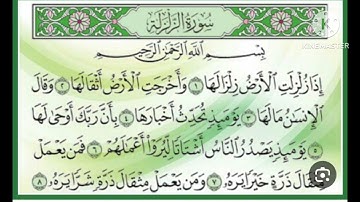 سُورَةُ الزَّلْزَلَةِ
بِسْمِ اللَّهِ الرَّحْمَٰنِ الرَّحِيمِ
إِذَا زُلْزِلَتِ الْأَرْضُ زِلْزَالَهَا ١ وَأَخْرَجَتِ الْأَرْضُ أَثْقَالَهَا ٢ وَقَالَ
الْإِنسَٰنُ مَا لَهَا ٣ يَوْمَئِذٍ تُحَدِّثُ أَخْبَارَهَا ٤ بِأَنَّ رَبَّكَ أَوْحَىٰ لَهَا
٥ يَوْمَئِذٍ يَصْدُرُ النَّاسُ أَشْتَاتًا لِّيُرَوْا أَعْمَٰلَهُمْ ٦ فَمَن يَعْمَلْ
مِثْقَالَ ذَرَّةٍ خَيْرًا يَرَهُۥ ٧ وَمَن يَعْمَلْ مِثْقَالَ ذَرَّةٍ شَرًّا يَرَهُۥ ٨
K
KINEMASTER